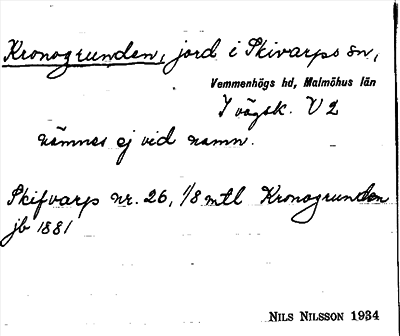 Kronogrunden, jord i Skivarps sn,
Vemmenhögs hd, Malmöhus län
I vägsk. V 2
nämnes ej vid namn.
Skifvarp nr. 26, 1/8 mtl Kronogrunden
jb 1881
NILS NILSSON 1934